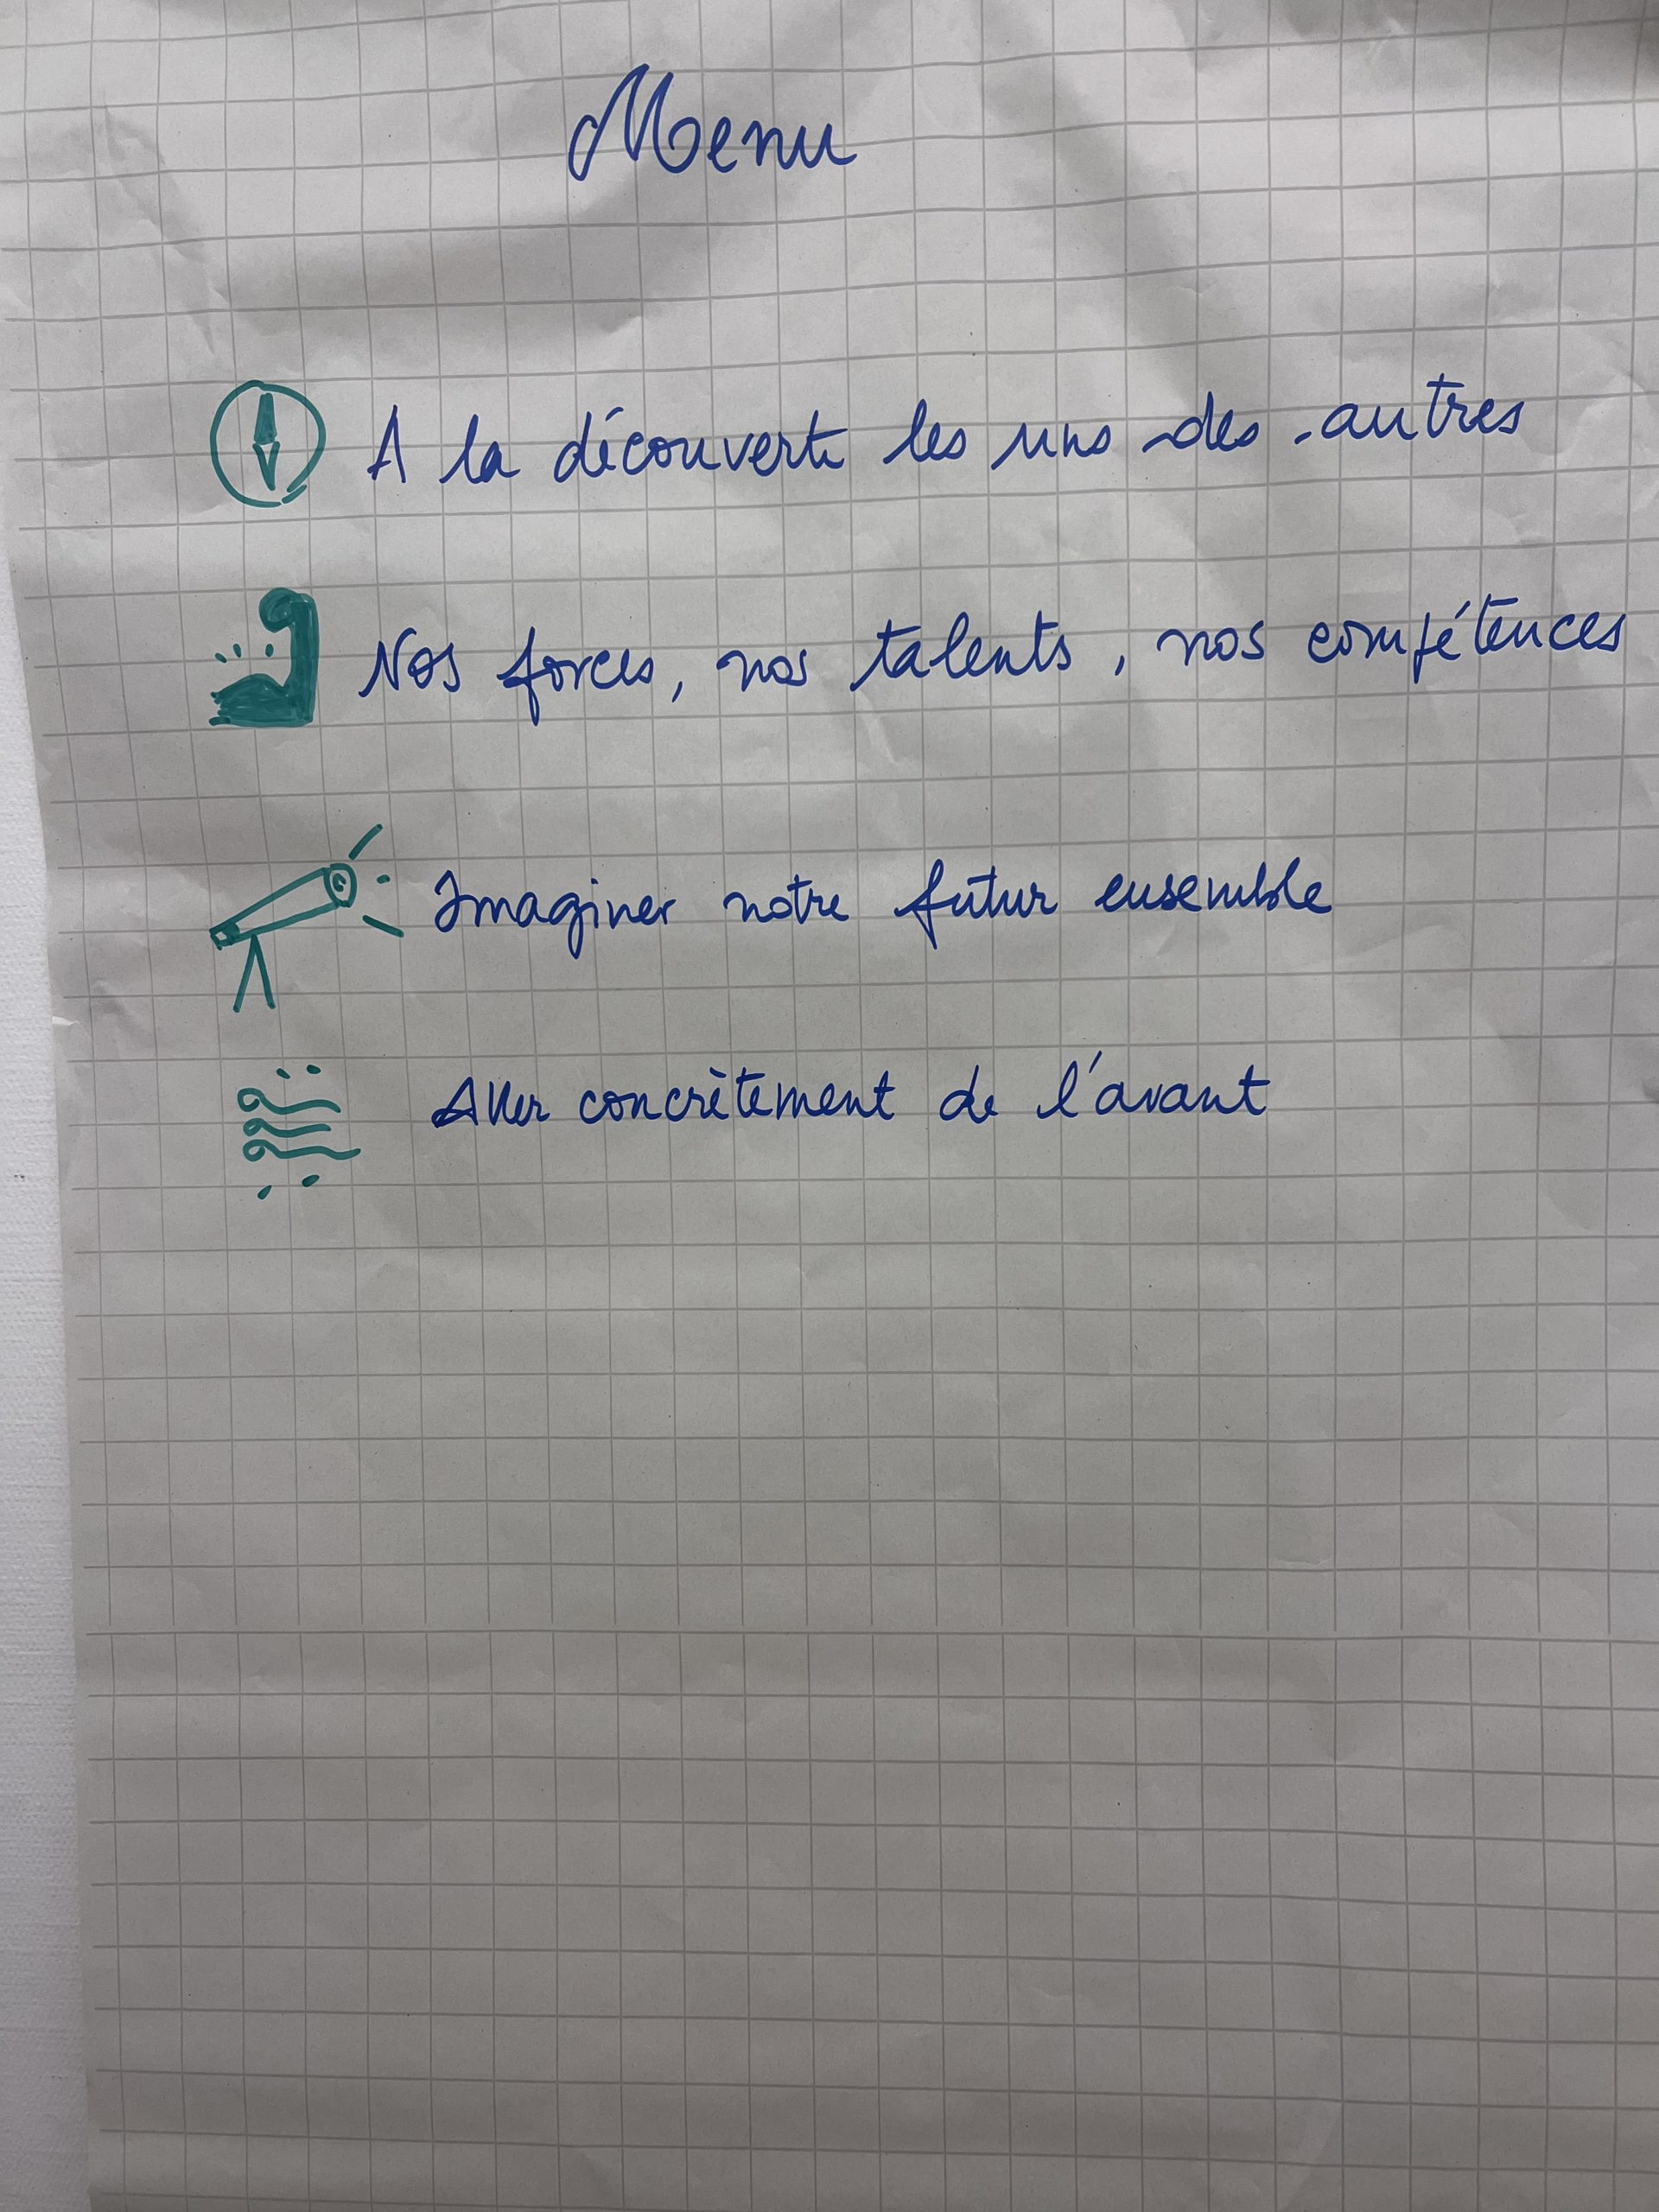 Menu
A la découverte les uns des autres
Nos forces, nos talents, nos compétences
Imaginer notre futur ensemble
Aller concrètement de l'avant